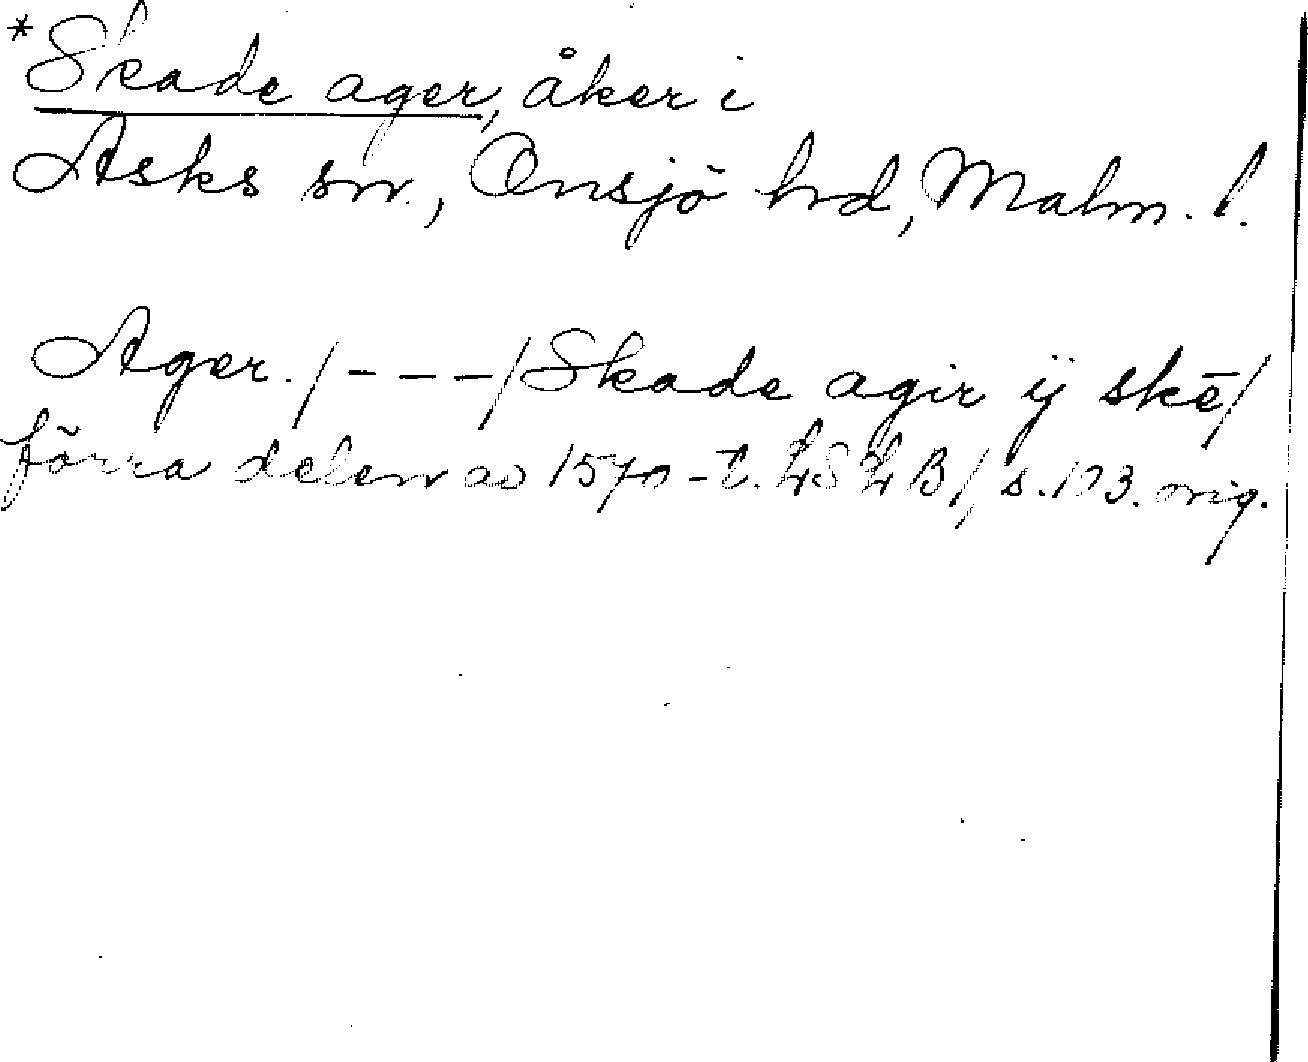 *Skade ager, åker i
Asks sn., Onsjö hrd, Malm. l.
Ager. /- - -/ Skade agir ij skē/
förra delen av 1570-t. LSLB/, s. 103. orig.